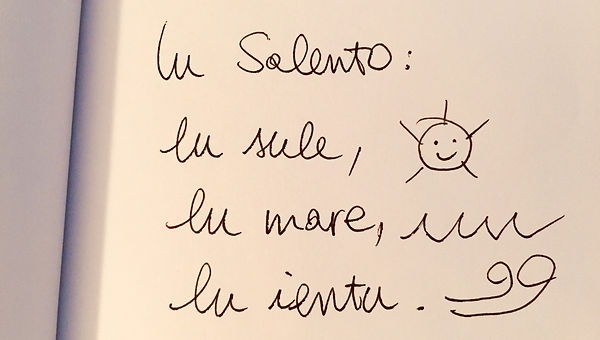 lu Salento:
lu sule,
lu mare,
lu ientu.